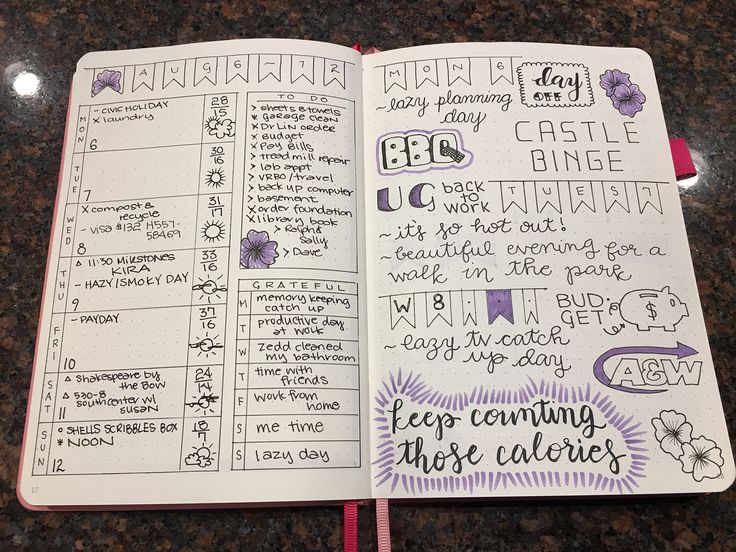 AUG 6~12
MON
- CIVIC HOLIDAY
x laundry
28
15
6
TUE
30
16
7
WED
x compost &
recycle
- visa $132 H557-
58469
31
17
8
THU
△ 11:30 MILKSTONES
KIRA
- HAZY/SMOKY DAY
33
16
9
FRI
- PAYDAY
37
16
10
SAT
△ Shakespeare by
the Bow
△ 530-8
southcenter w/
susan
24
14
11
SUN
o SHELLS SCRIBBLES BOX
* NOON
18
7
12
17
TO DO
> sheets & towels
* garage clean
x Dr Lin order
x Budget
x Pay Bills
> treadmill repair
> lab appt
> VRBO/travel
> back up computer
> basement
x order foundation
x library book
> Ralph &
Sally
> Dave
GRATEFUL
M memory keeping
catch up
T productive day
at work
W zedd cleaned
my bathroom
T time with
friends
F work from
home
S me time
S lazy day
MON 6
day
OFF
~ lazy planning
day
BBQ
CASTLE
BINGE
UG back
to
work
TUES 7
~ it's so hot out!
~ beautiful evening for a
walk in the park
W 8
BUD-
GET
$
~ lazy tv catch
up day
A&W
keep counting
those calories